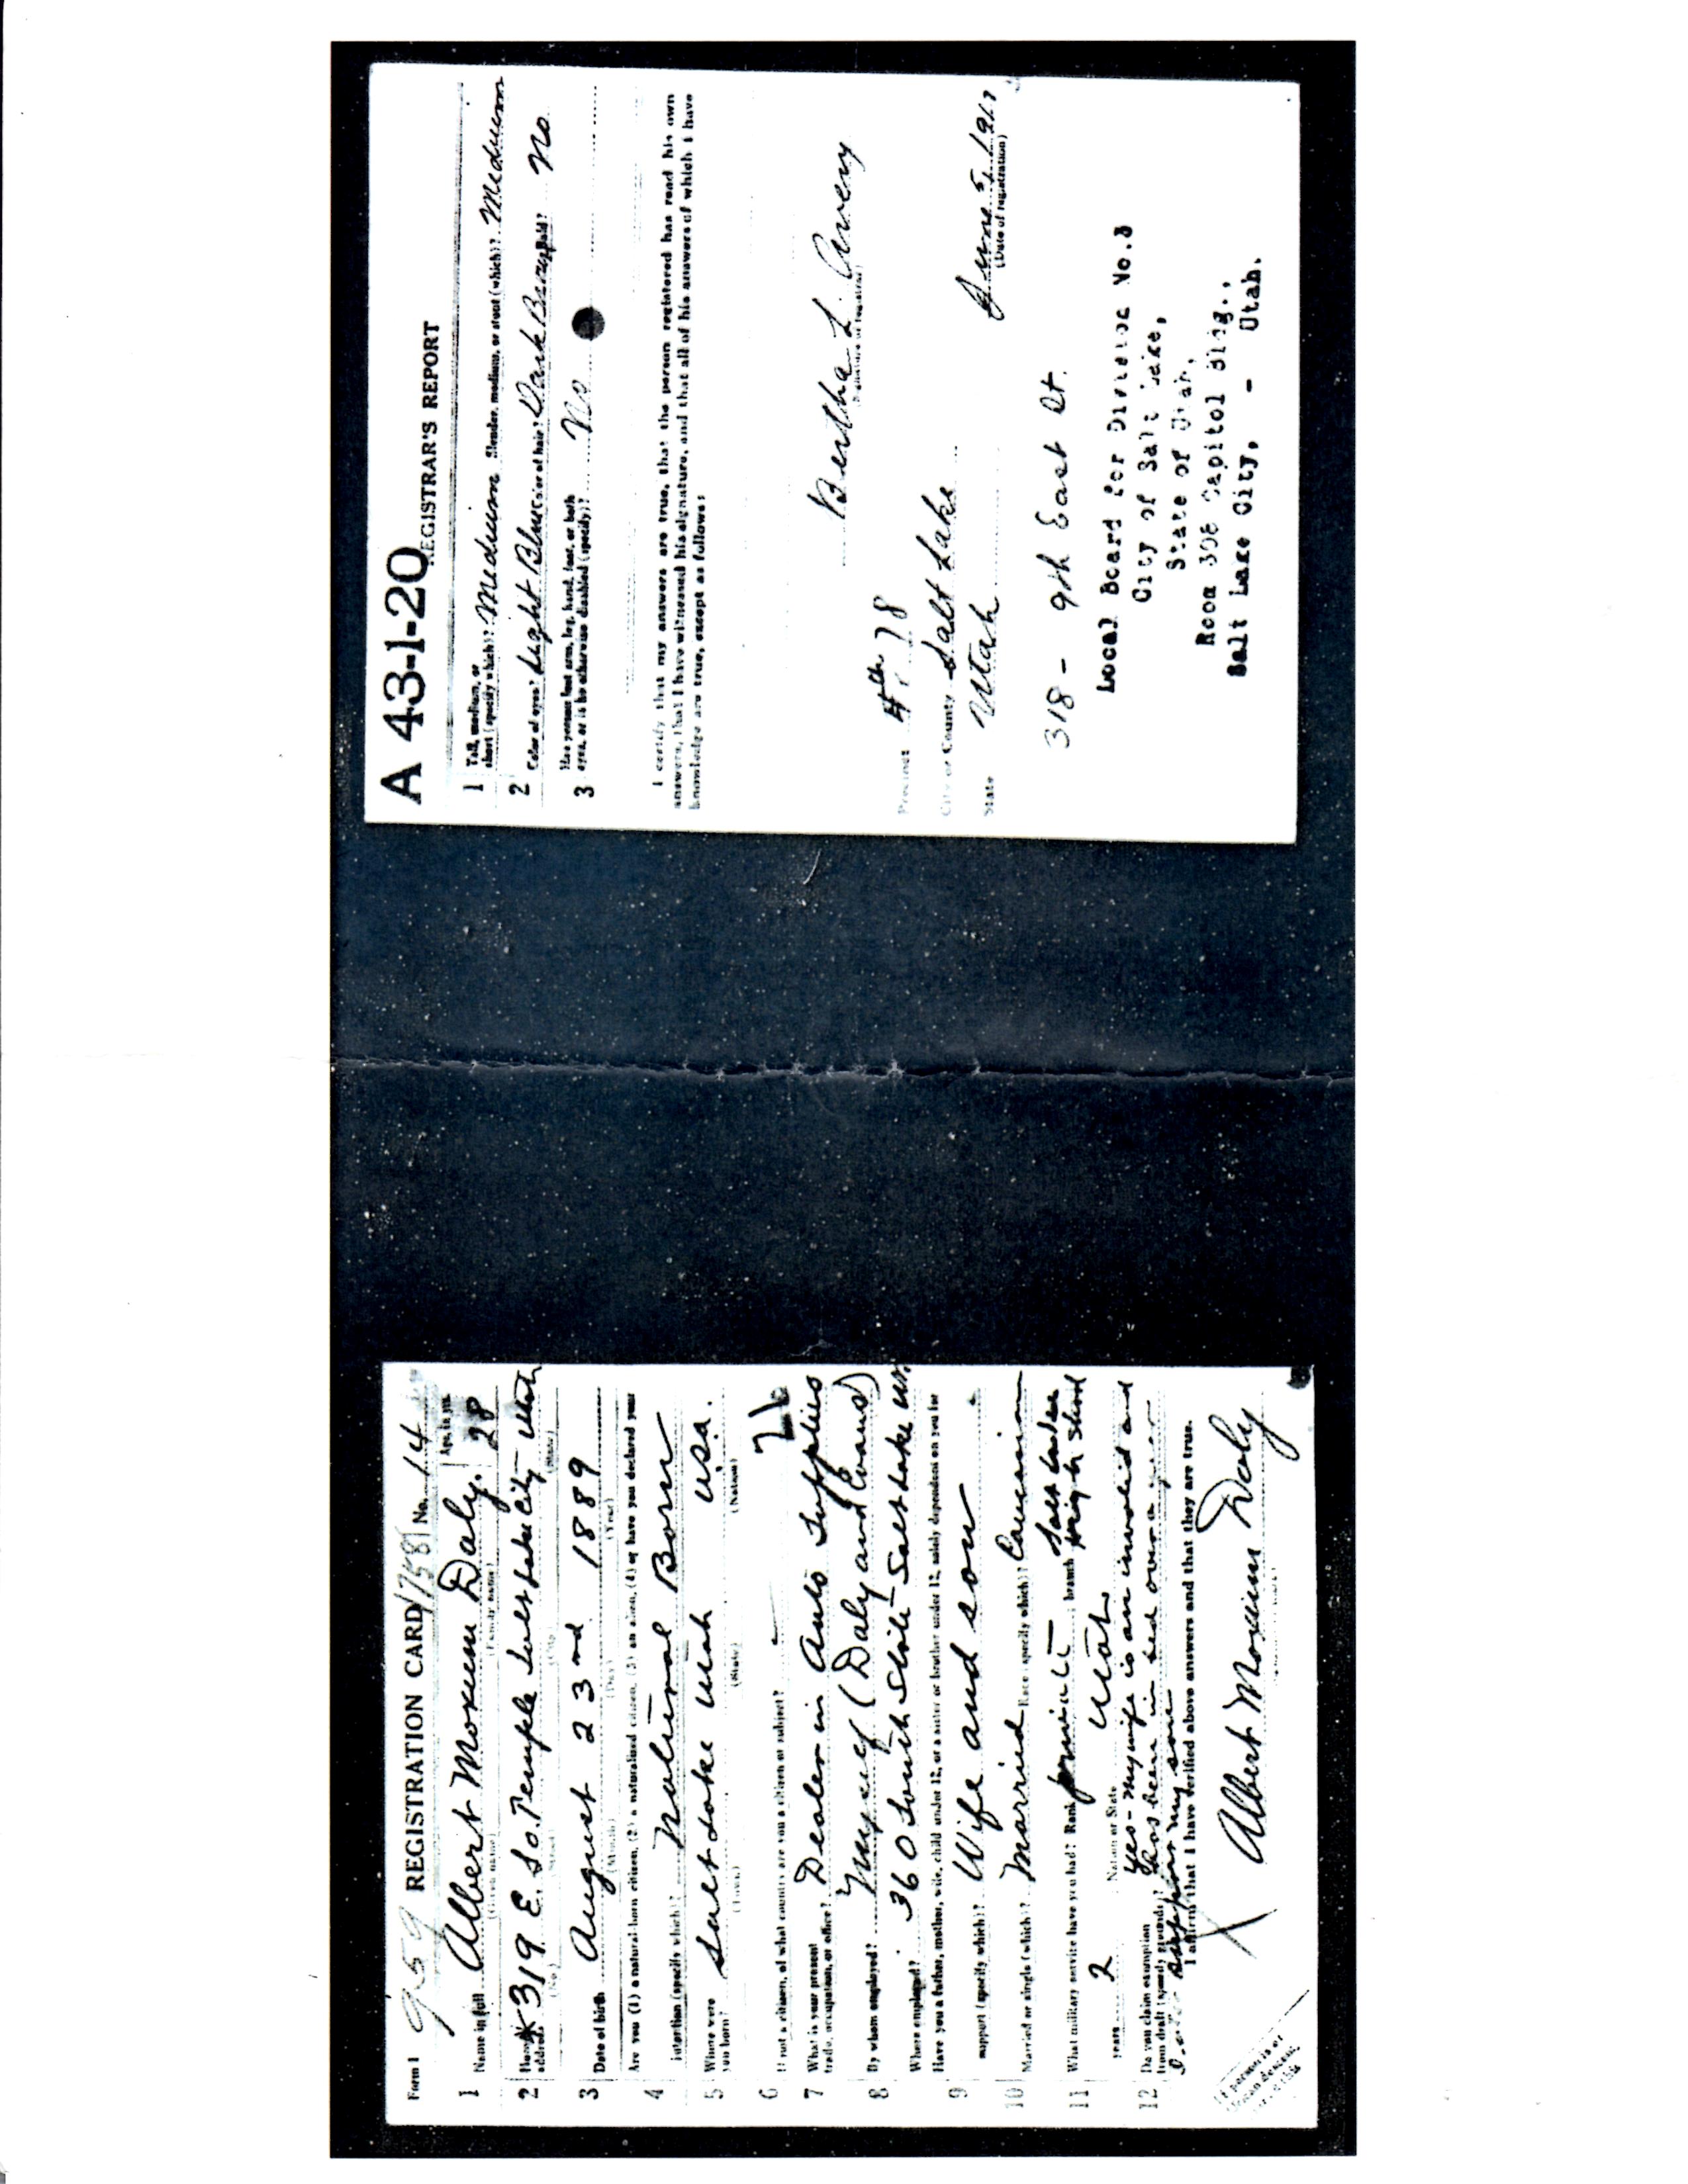 Form 1 959 REGISTRATION CARD 1758 No. 14
1 Name in full Albert Moxum Daly. Age, in yrs. 28
(Given name) (Family name)
2 Home address 319 E. So. Temple Salt Lake City Utah
(No.) (Street) (City) (State)
3 Date of birth August 23rd 1889
(Month) (Day) (Year)
Are you (1) a natural born citizen, (2) a naturalized citizen, (3) an alien, (4) or have you declared your
4 intention (specify which)? Natural Born
5 Where were you born? Salt Lake Utah U.S.A.
(Town) (State) (Nation)
6 If not a citizen, of what country are you a citizen or subject?
21
7 What is your present trade, occupation, or office? Dealer in Auto Supplies
8 By whom employed? Myself (Daly and Evans)
Where employed? 360 South State Salt Lake
Have you a father, mother, wife, child under 12, or a sister or brother under 12, solely dependent on you for
9 support (specify which)? Wife and son
10 Married or single (which)? Married Race (specify which)? Caucasian
11 What military service have you had? Rank private ; branch Salt Lake High School
years 2 Nation or State Utah
12 Do you claim exemption from draft (specify grounds)? Yes - my wife is an invalid and
has been in bed over a year
I support my son
I affirm that I have verified above answers and that they are true.
X Albert Moxum Daly
If person is of
African descent,
A 43-1-20
REGISTRAR'S REPORT
1 Tall, medium, or short (specify which)? Medium Slender, medium, or stout (which)? Medium
2 Color of eyes? Light Blue Color of hair? Dark Brown Bald? No
3 Has person lost arm, leg, hand, foot, or both eyes, or is he otherwise disabled (specify)? No
I certify that my answers are true, that the person registered has read his own
answers, that I have witnessed his signature, and that all of his answers of which I have
knowledge are true, except as follows:
Bertha L. Avery
(Signature of registrar)
Precinct 4th 78
City or County Salt Lake
State Utah
June 5, 1917
(Date of registration)
318 - 9th East St.
Local Board for Division No.3
City of Salt Lake,
State of Utah,
Room 308 Capitol Bldg.,
Salt Lake City, - Utah.